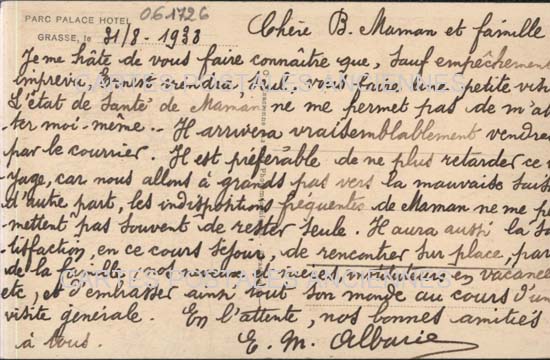 PARC PALACE HOTEL
061726
GRASSE, le 31/8 - 1933
Chère B. Maman et famille
Je me hâte de vous faire connaître que, sauf empêchement
imprévu, se rendra, seul, vous faire une petite visi
L'état de santé de Maman ne me permet pas de m'ab
ter moi-même.- Il arrivera vraisemblablement vendre
par le courrier. Il est préférable de ne plus retarder ce v
yage, car nous allons à grands pas vers la mauvaise sais
d'autre part, les indispositions fréquentes de Maman ne me pe
mettent pas souvent de rester seule. Il aura aussi la sa
tisfaction, en ce cours séjour, de rencontrer sur place, par
de la famille, nos neveux & nièces, en vacances
etc, et d'embrasser ainsi tout son monde au cours d'un
visite générale. En l'attente, nos bonnes amitiés
à tous. E. M. Albarie
CARTES POSTALES ANCIENNES
CARTES POSTALES ANCIENNES